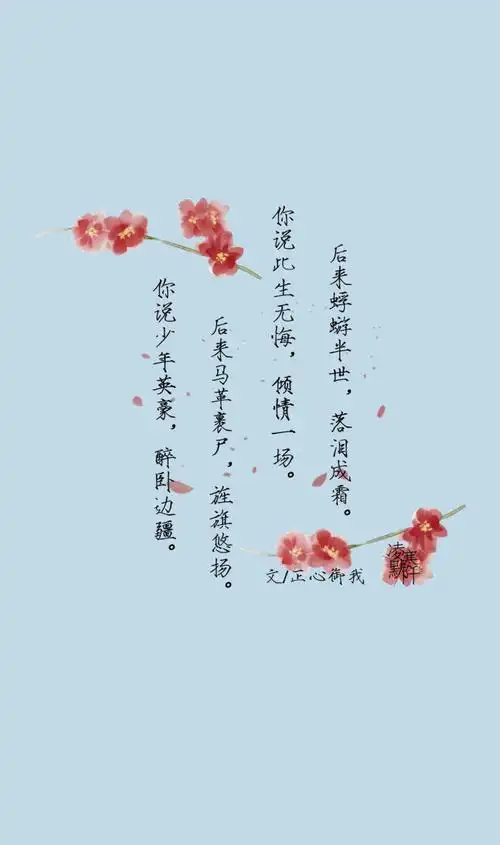 你说少年英豪，醉卧边疆。
后来马革裹尸，旌旗悠扬。
你说此生无悔，倾情一场。
后来蜉蝣半世，落泪成霜。
文/正心御我